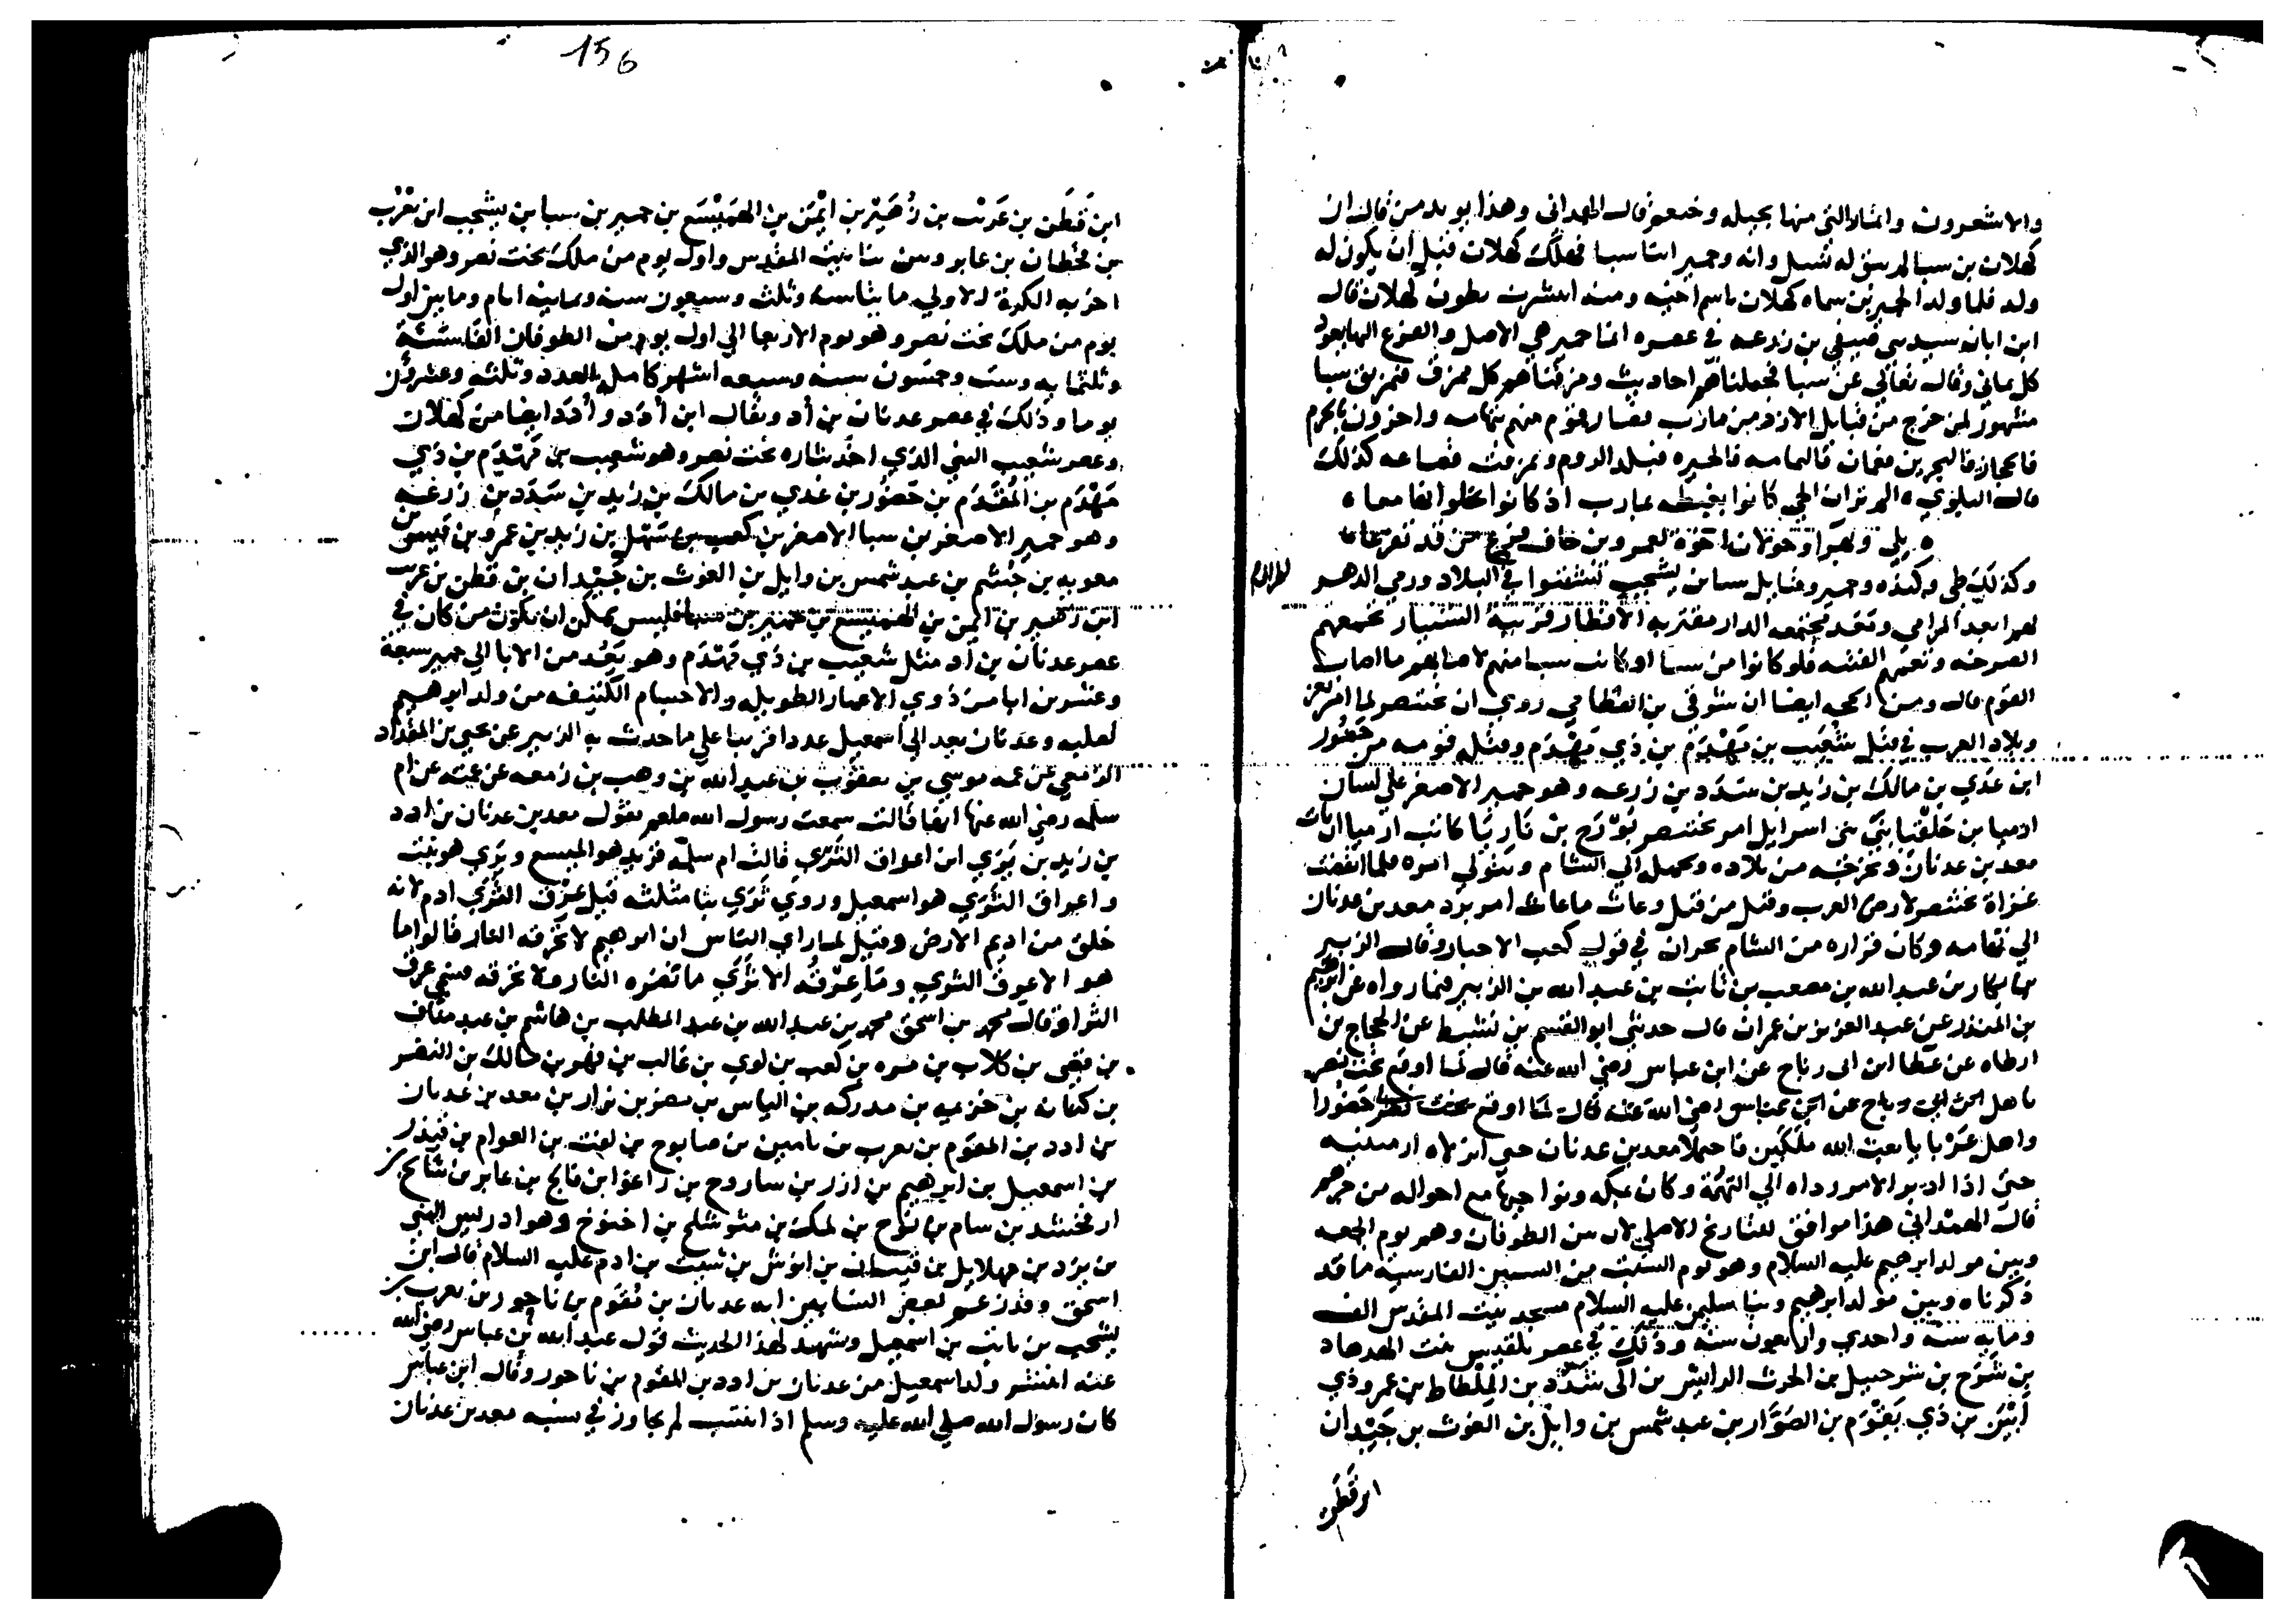 والاشعرون وانمار التي منها بجيله وخثعم قال الهمداني وهذا يويد من قال ان
كهلان بن سبا لم يبق له نسل وانه وحمير ابنا سبا فهلك كهلان قبل ان يكون له
ولد فلما ولد لحمير بن سماه كهلان باسم اخيه ومنه انتشرت بطون كهلان قال
ابن ابان سيدي قيفي بن زرعه في عصره انما حمير هي الاصل والفرع اليها يعود
كل يماني وقال تعالي عن سبا فجعلناهم احاديث ومزقناهم كل ممزق فتمزيق سبا
مشهور لمن خرج من قبايل الازد من مارب فصار قوم منهم بتهامه واخرون بالحرم
فالحجاز فالبحرين فعمان فاليمامه فالحيره فبلد الروم وتمزقت قضاعه كذلك
قال البلوي ه الم تر ان الحي كانوا بغبطه بمارب اذ كانوا يحلوا بها معا ه
ه بلي وبهرا وخولان اخوة لعمرو بن حاف فرع من قد تفرعا ه
وكذلك طي وكنده وحمير وقبايل سبا بن يشجب تشتتوا في البلاد ورمي الدهر
لهم ابعد المرامي ومعد مجتمعه الدار مقتربه الاقطار قريبة التيار تجمعهم
الصرخه وتعمهم الفتنه فلو كانوا من سبا او كانت سبا منهم لاصابهم ما اصاب
القوم قال ومن الحجه ايضا ان شرقي بن القطامي روي ان بختنصر لما امر بغز
وبلاد العرب في قتل شعيب بن مهدم بن ذي مهدم وقتله قومه من حضور
ابن عدي بن مالك بن زيد بن سدد بن زرعه وهو حمير الاصغر علي لسان
ارميا بن حلقيا نبي بني اسرايل امر بختنصر نبوزرج بن ناربيا كاتب ارميا ان يات
معد بن عدنان فيخرجه من بلاده ويحمل الي الشام ويتولي امره فلما انقضت
غزاة بختنصر لارض العرب وقتل من قتل وعاث ما عاث امر برد معد بن عدنان
الي تهامه وكان قراره من الشام بحران في قول كعب الاحبار وقال الزبير
بن بكار بن عبد الله بن مصعب بن ثابت بن عبد الله بن الزبير فيما رواه عن ابرهيم
بن المنذر عن عبد العزيز بن عمران قال حدثني ابو القسم بن نشيط عن الحجاج بن
ارطاه عن عطا ابن ابي رباح عن ابن عباس رضي الله عنه قال لما اوقع بخت نصر
حضورا
واهل عربايا بعث الله ملكين فاحتملا معد بن عدنان حتي انزلاه ارمينيه
حتي اذا ادبر الامر رداه الي التهمه وكان بمكه ونواحيها مع اخواله من جرهم
قال الهمداني هذا موافق للتاريخ الاصلي لان من الطوفان وهو يوم الجمعه
وبين مولد ابرهيم عليه السلام وهو يوم السبت من السنين الفارسيه ما قد
ذكرناه وبين مولد ابرهيم وبنا سليمن عليه السلام مسجد بيت المقدس الف
ومايه سنه واحدي واربعون سنه وذلك في عصر بلقيس بنت الهدهاد
بن شرح بن شرحبيل بن الحرث الرايش بن الي شدد بن الملطاط بن عمرو ذي
ابين بن ذي يقدم بن الصوار بن عبد شمس بن وايل بن الغوث بن جيدان
ابن قطن
156
ابن قطن بن عريب بن زهير بن ايمن بن الهميسع بن حمير بن سبا بن يشجب ابن يعرب
بن قحطان بن عابر ومن بنا بيت المقدس واول يوم من ملك بخت نصر وهو الذي
اخر به الكره الاولي مايتا سنه وثلث وسبعون سنه وثمانيه ايام وما بين اول
يوم من ملك بخت نصر وهو يوم الاربعا الي اول يوم من الطوفان الفا سنة
وثلثمايه وست وخمسون سنه وسبعه اشهر كامله العدد وثلثه وعشرون
يوما وذلك في عصر عدنان بن أد ويقال ابن أدد وأدد ايضا من كهلان
وعصر شعيب النبي الذي اخذ بثاره بخت نصر وهو شعيب بن مهدم بن ذي
مهدم بن المقدم بن حضور بن عدي بن مالك بن زيد بن سدد بن زرعه
وهو حمير الاصغر بن سبا الاصغر بن كعب بن سهل بن زيد بن عمرو بن قيس بن
معويه بن جشم بن عبد شمس بن وايل بن الغوث بن جيدان بن قطن بن عريب
ابن زهير بن ايمن بن الهميسع بن حمير بن سبا فليس يمكن ان يكون من كان في
عصر عدنان بن أد مثل شعيب بن ذي مهدم وهو يعد من الابا الي حمير سبعة
وعشرين ابا من ذوي الاعمار الطويله والاجسام الكثيفه من ولد ابرهيم
لصلبه وعدنان يعد الي اسمعيل عددا قريبا علي ما حدث به الزبير عن يحيي بن المقداد
الزمعي عن عمه موسي بن يعقوب بن عبد الله بن وهب بن زمعه عن عمته عن ام
سلمه رضي الله عنها انها قالت سمعت رسول الله صلعم يقول معد بن عدنان بن ادد
بن زيد بن يري ابن اعراق الثري قالت ام سلمه فزيد هو الهميسع ويري هو نبت
واعراق الثري هو اسمعيل وروي ثري بثا مثلثه قيل عرق الثري ادم لانه
خلق من اديم الارض وقيل لما راي الناس ان ابرهيم لا تحرقه النار قالوا ما
هو الا عرق الثري وما عرقه الا ثري ما تضره النار ولا تحرقه فسمي عرق
الثرا وقال محمد بن اسحق محمد بن عبد الله بن عبد المطلب بن هاشم بن عبد مناف
بن قصي بن كلاب بن مره بن كعب بن لوي بن غالب بن فهر بن مالك بن النضر
بن كنانه بن خزيمه بن مدركه بن الياس بن مضر بن نزار بن معد بن عدنان
بن ادد بن المقوم بن يعرب بن يامين بن صابوح بن نبت بن العوام بن قيذر
بن اسمعيل بن ابرهيم بن ازر بن ساروح بن راغو ابن فالج بن عابر بن شالخ بن
ارفخشد بن سام بن نوح بن لمك بن متوشلح بن اخنوخ وهو ادريس النبي
بن يرد بن مهلايل بن قينان بن انوش بن شيث بن ادم عليه السلام قال ابن
اسحق وقد زعم بعض النسابين انه عدنان بن مقوم بن ناحور بن يعرب بن
يشجب بن نابت بن اسمعيل وشهد لهذا الحديث قول عبد الله بن عباس رضي الله
عنه انتشر ولد اسمعيل من عدنان بن ادد بن المقوم بن ناحور وقال ابن عباس
كان رسول الله صلي الله عليه وسلم اذا انتسب لم يجاوز في نسبه معد بن عدنان